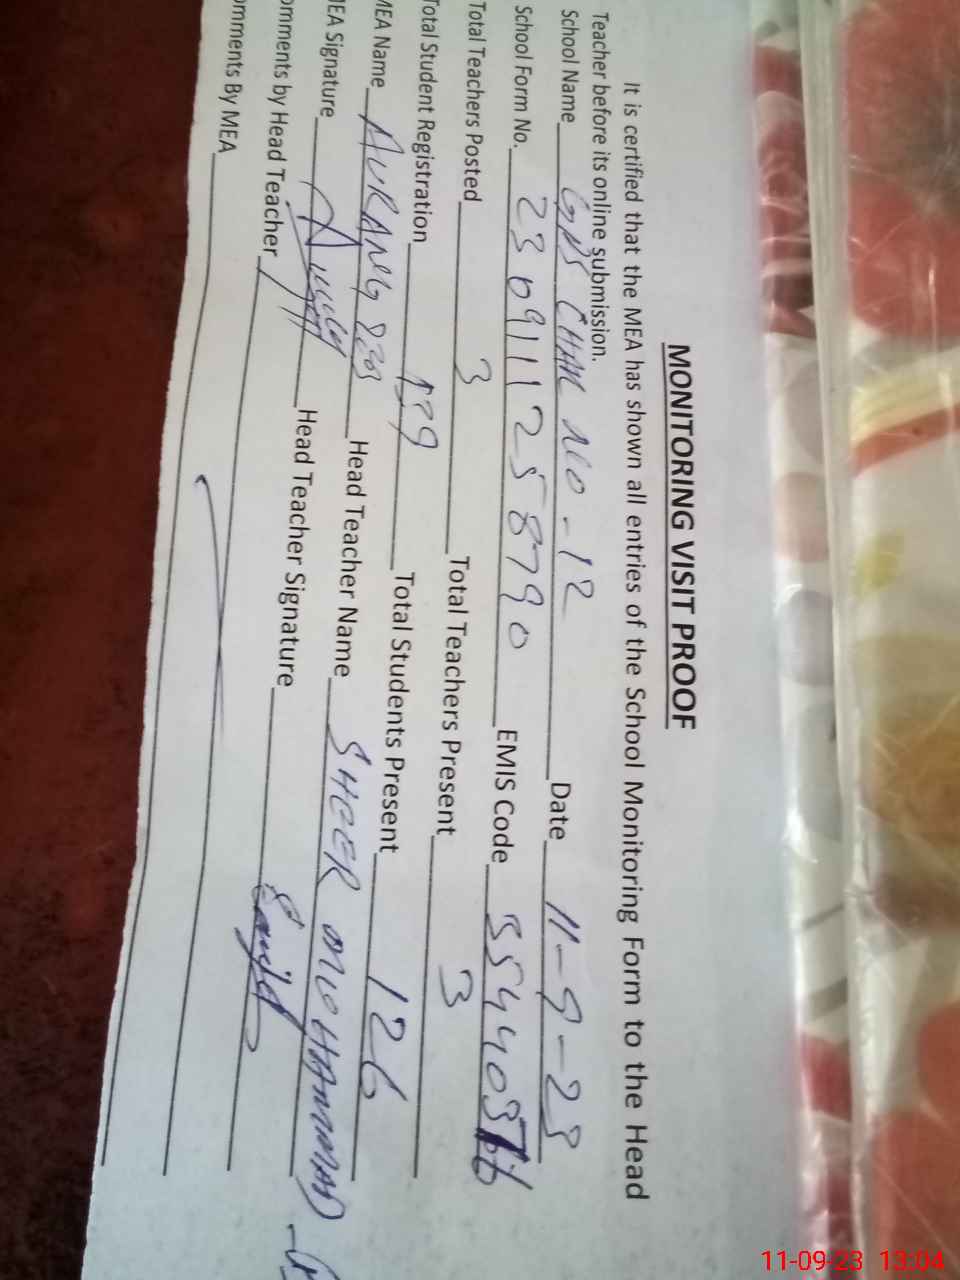 MONITORING VISIT PROOF
It is certified that the MEA has shown all entries of the School Monitoring Form to the Head
Teacher before its online submission.
School Name GPS CHAK NO-12 Date 11-9-23
School Form No. 2309111258790 EMIS Code
Total Teachers Posted 3 Total Teachers Present 3
Total Student Registration 139 Total Students Present 126
MEA Name Head Teacher Name SHEER MUHAMMAD
EA Signature Head Teacher Signature
omments by Head Teacher
omments By MEA
11-09-23 13:04